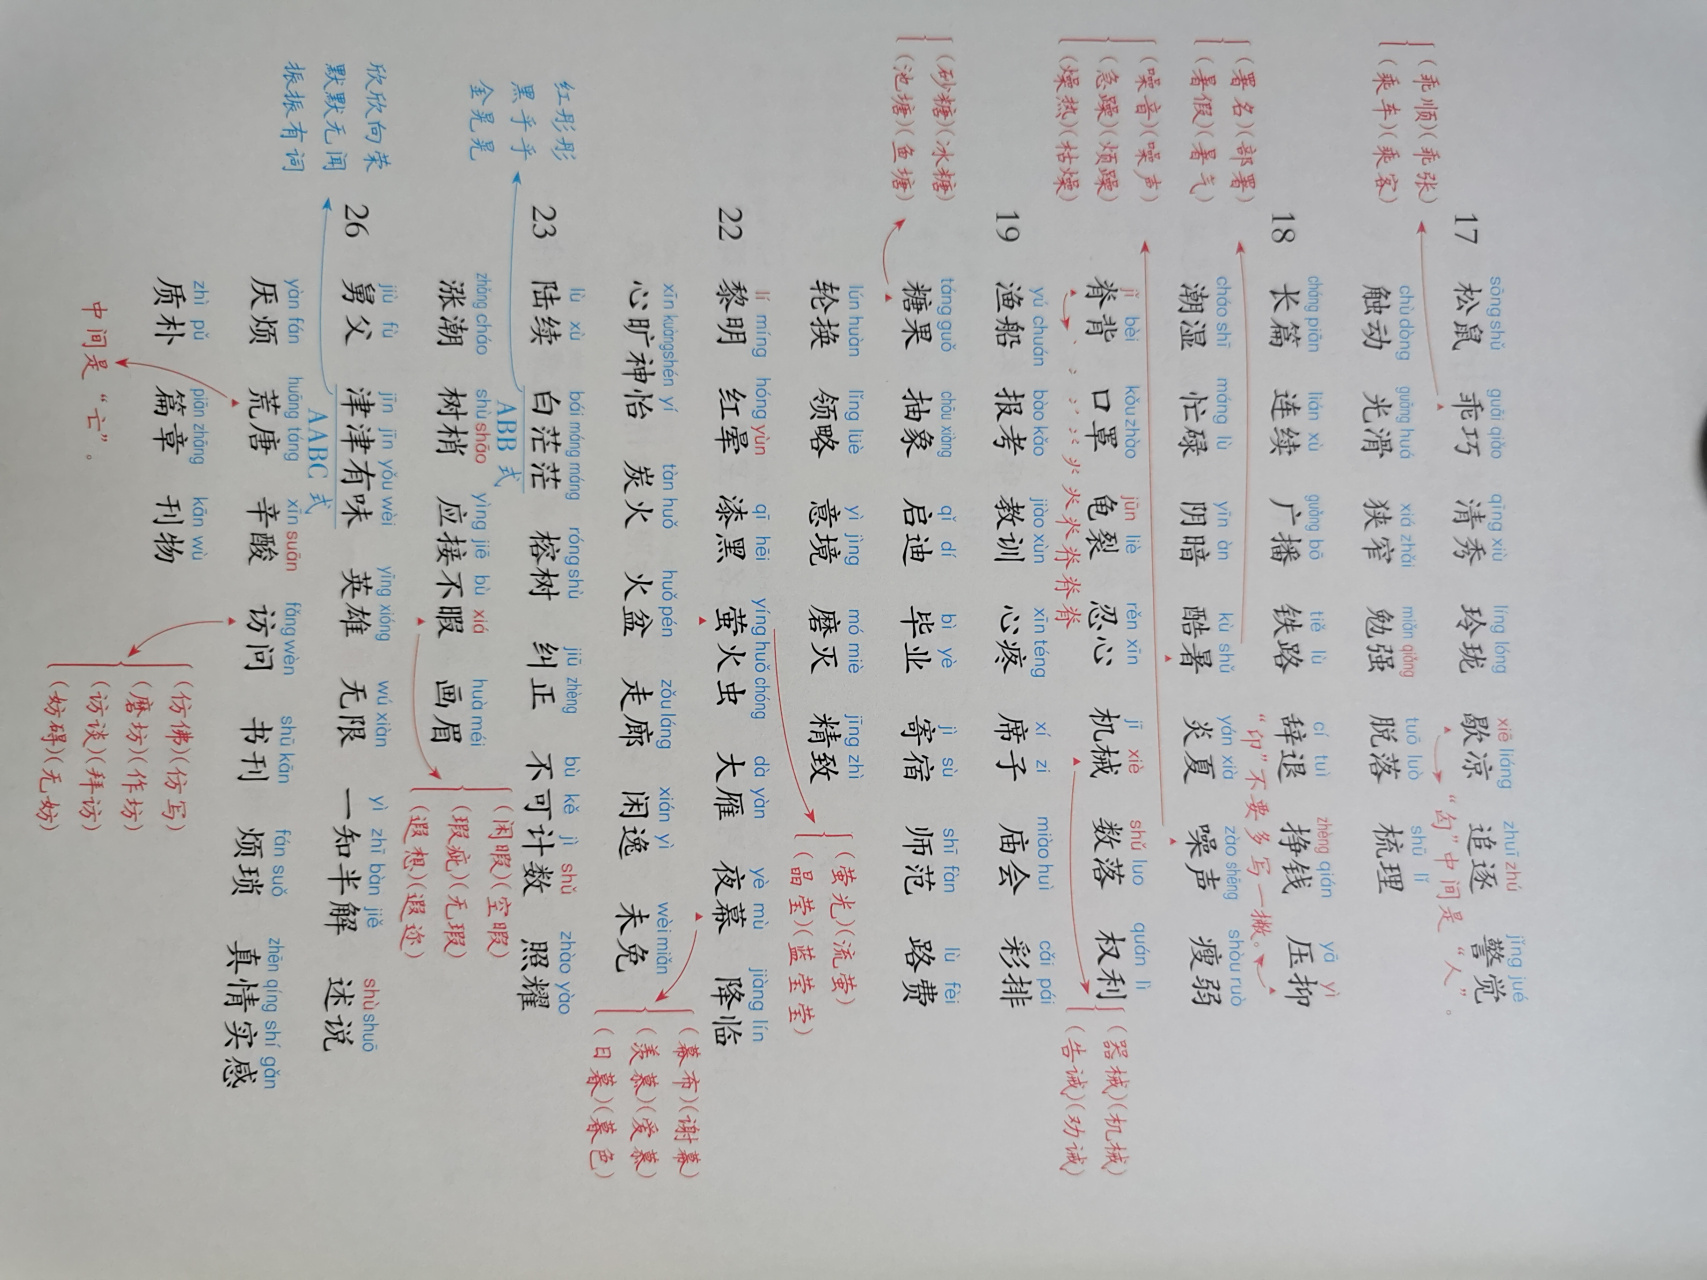 (乖顺)(乖张)
(乘车)(乘客)
sōng shǔ guāi qiǎo qīng xiù líng lóng xiē liáng zhuī zhú jǐng jué
17 松鼠 乖巧 清秀 玲珑 歇凉 追逐 警觉
“匈”中间是“人”。
chù dòng guāng huá xiá zhǎi miǎn qiǎng tuō luò shū lǐ
触动 光滑 狭窄 勉强 脱落 梳理
(署名)(部署)
(暑假)(暑气)
cháng piān lián xù guǎng bō tiě lù cí tuì zhèng qián yā yì
18 长篇 连续 广播 铁路 辞退 挣钱 压抑
“卬”不要多写一撇。
cháo shī máng lù yīn àn kù shǔ yán xià zào shēng shòu ruò
潮湿 忙碌 阴暗 酷暑 炎夏 噪声 瘦弱
(噪音)(噪声)
(急躁)(烦躁)
(燥热)(枯燥)
jǐ bèi kǒu zhào jūn liè rěn xīn jī xiè shǔ luo quán lì
脊背 口罩 龟裂 忍心 机械 数落 权利
(器械)(机械)
(告诫)(劝诫)
yú chuán bào kǎo jiào xùn xīn téng xí zi miào huì cǎi pái
19 渔船 报考 教训 心疼 席子 庙会 彩排
(砂糖)(冰糖)
(池塘)(鱼塘)
táng guǒ chōu xiàng qǐ dí bì yè jì sù shī fàn lù fèi
糖果 抽象 启迪 毕业 寄宿 师范 路费
lún huàn lǐng lüè yì jìng mó miè jīng zhì
轮换 领略 意境 磨灭 精致
(萤光)(流萤)
(晶莹)(蓝莹莹)
lí míng hóng yùn qī hēi yíng huǒ chóng dà yàn yè mù jiàng lín
22 黎明 红晕 漆黑 萤火虫 大雁 夜幕 降临
(幕布)(谢幕)
(羡慕)(爱慕)
(日暮)(暮色)
xīn kuàng shén yí tàn huǒ huǒ pén zǒu láng xián yì wèi miǎn
心旷神怡 炭火 火盆 走廊 闲逸 未免
红彤彤
黑乎乎
金晃晃
lù xù bái máng máng róng shù jiū zhèng bù kě jì shǔ zhào yào
23 陆续 白茫茫 榕树 纠正 不可计数 照耀
ABB 式
zhǎng cháo shù shāo yìng jiē bù xiá huà méi
涨潮 树梢 应接不暇 画眉
(闲暇)(空暇)
(瑕疵)(无瑕)
(遐想)(遐迩)
欣欣向荣
默默无闻
振振有词
jiù fù jīn jīn yǒu wèi yīng xióng wú xiàn yì zhī bàn jiě shù shuō
26 舅父 津津有味 英雄 无限 一知半解 述说
AABC 式
yàn fán huāng táng xīn suān fǎng wèn shū kān fán suǒ zhēn qíng shí gǎn
厌烦 荒唐 辛酸 访问 书刊 烦琐 真情实感
zhì pǔ piān zhāng kān wù
质朴 篇章 刊物
中间是“亡”。
(仿佛)(仿写)
(磨坊)(作坊)
(访谈)(拜访)
(妨碍)(无妨)